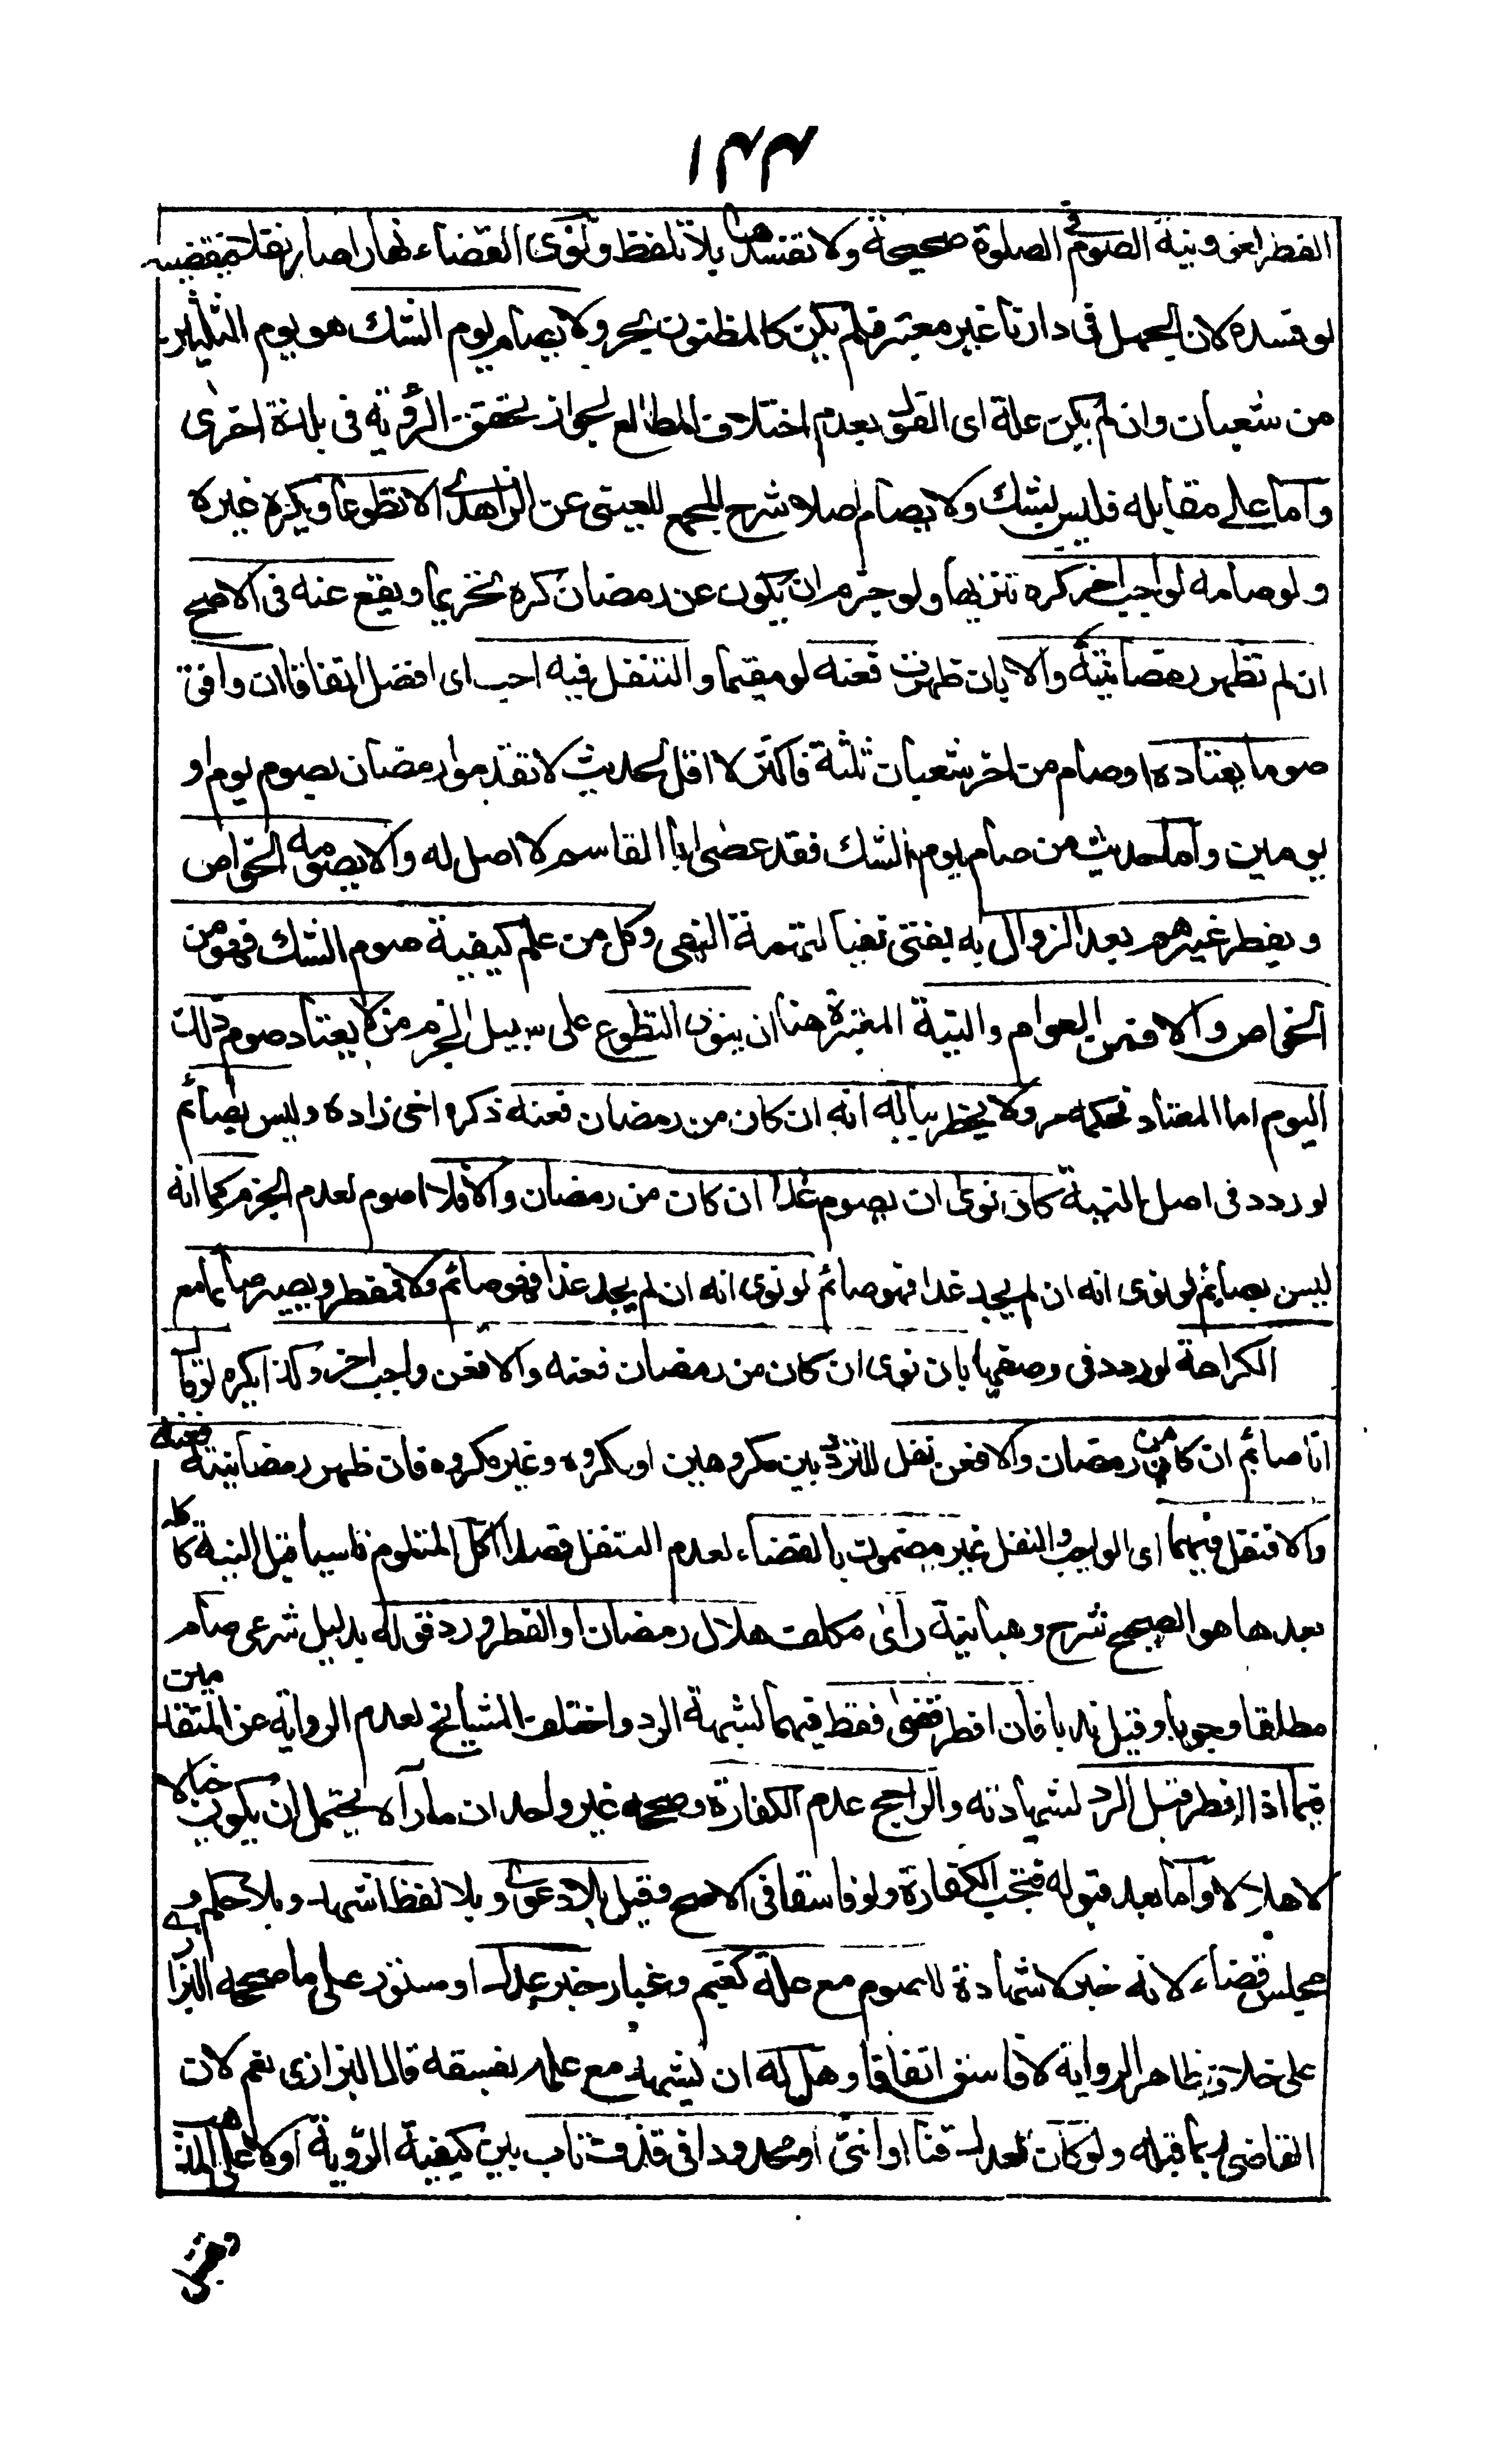 ١٣٣
الفطر لغو ونية الصوم في الصلوة صحيحة ولا تفسدها بلا تلفظ ولو نوى القضاء نهارا صار نفلا فيقضيه
لو فسده لان الجهل في دارنا غير معتبر فلم يكن كالمظنون بحر ولا يصام يوم الشك هو يوم الثلثين
من شعبان وان لم يكن علة اى القول بعدم اختلاف المطالع لجواز تحقق الرؤية في بلدة اخرى
واما على مقابله فليس بشك ولا يصام اصلا شرح المجمع للعيني عن الزاهدى الا تطوعا ويكره غيره
ولو صامه لواجب اخر كره تنزيها ولو جزم ان يكون عن رمضان كره تحريما ويقع عنه في الاصح
ان لم تظهر رمضانيته والا بان ظهرت فعنه لو مقيما والتنفل فيه احب اى افضل اتفاقا ان وافق
صوما يعتاده او صام من اخر شعبان ثلثة فاكثر لا اقل لحديث لا تقدموا رمضان بصوم يوم او
يومين واما حديث من صام يوم الشك فقد عصى ابا القاسم لا اصل له والا يصومه الخواص
ويفطر غيرهم بعد الزوال به يفتى نفيا لتهمة النهى وكل من علم كيفية صوم الشك فهو من
الخواص والا فمن العوام والنية المعتبرة هنا ان ينوى التطوع على سبيل الجزم من لا يعتاد صوم ذلك
اليوم اما المعتاد فحكمه مر ولا يخطر بباله انه ان كان من رمضان فعنه ذكره اخى زاده وليس بصائم
لو ردد في اصل النية كان نوى ان يصوم غدا ان كان من رمضان والا فلا اصوم لعدم الجزم كما انه
ليس بصائم لو نوى انه ان لم يجد غدا فهو صائم لو نوى انه ان لم يجد غدا فهو صائم ولا فمفطر ويصير صائما مع
الكراهة لو ردد في وصفها بان نوى ان كان من رمضان فعنه والا فعن واجب اخر وكذا يكره لو قال
انا صائم ان كان من رمضان والا فعن نفل للتردد بين مكروهين او مكروه وغير مكروه فان ظهر رمضانيته فعنه
والا فنفل فيهما اى الواجب والنفل غير مضمون بالقضاء لعدم التنفل قصدا اكل المتلوم ناسيا قبل النية كاكله
بعدها هو الصحيح شرح وهبانية رأى مكلف هلال رمضان او الفطر ورد قوله بدليل شرعى صام
مطلقا وجوبا وقيل ندبا فان افطر قضى فقط فيهما لشبهة الرد واختلف المشايخ لعدم الرواية عن المتقدمين
فيما اذا افطر قبل الرد لشهادته والراجح عدم الكفارة وصححه غير واحد ان ما رآه يحتمل ان يكون خيالا
لا هلالا واما بعد قبوله فتجب الكفارة ولو فاسقا في الاصح وقيل بلا دعوى وبلا لفظ اشهد وبلا حكم و
مجلس قضاء لانه خبر لا شهادة للصوم مع علة كغيم وغبار خبر عدل او مستور على ما صححه البزازى
على خلاف ظاهر الرواية لا فاسق اتفاقا وهل له ان يشهد مع علمه بفسقه قال البزازى نعم لان
القاضى ربما قبله ولو كان العدل قنا او انثى او محدودا في قذف تاب بين كيفية الرؤية اولا على المذهب